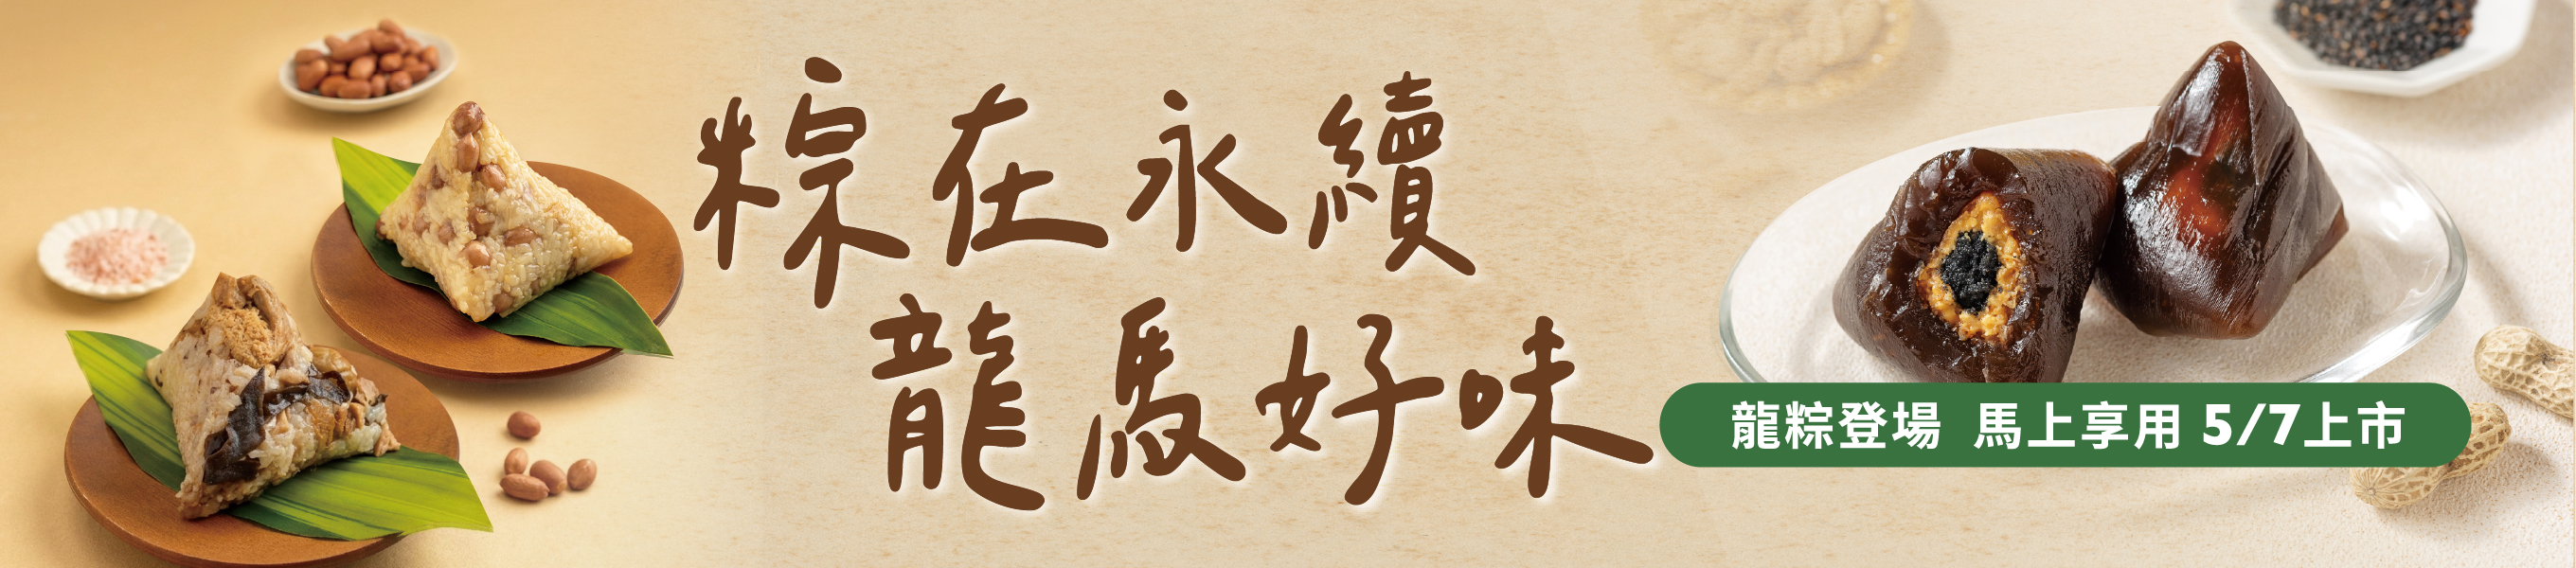 粽在永續
龍馬好味
龍粽登場 馬上享用 5/7上市